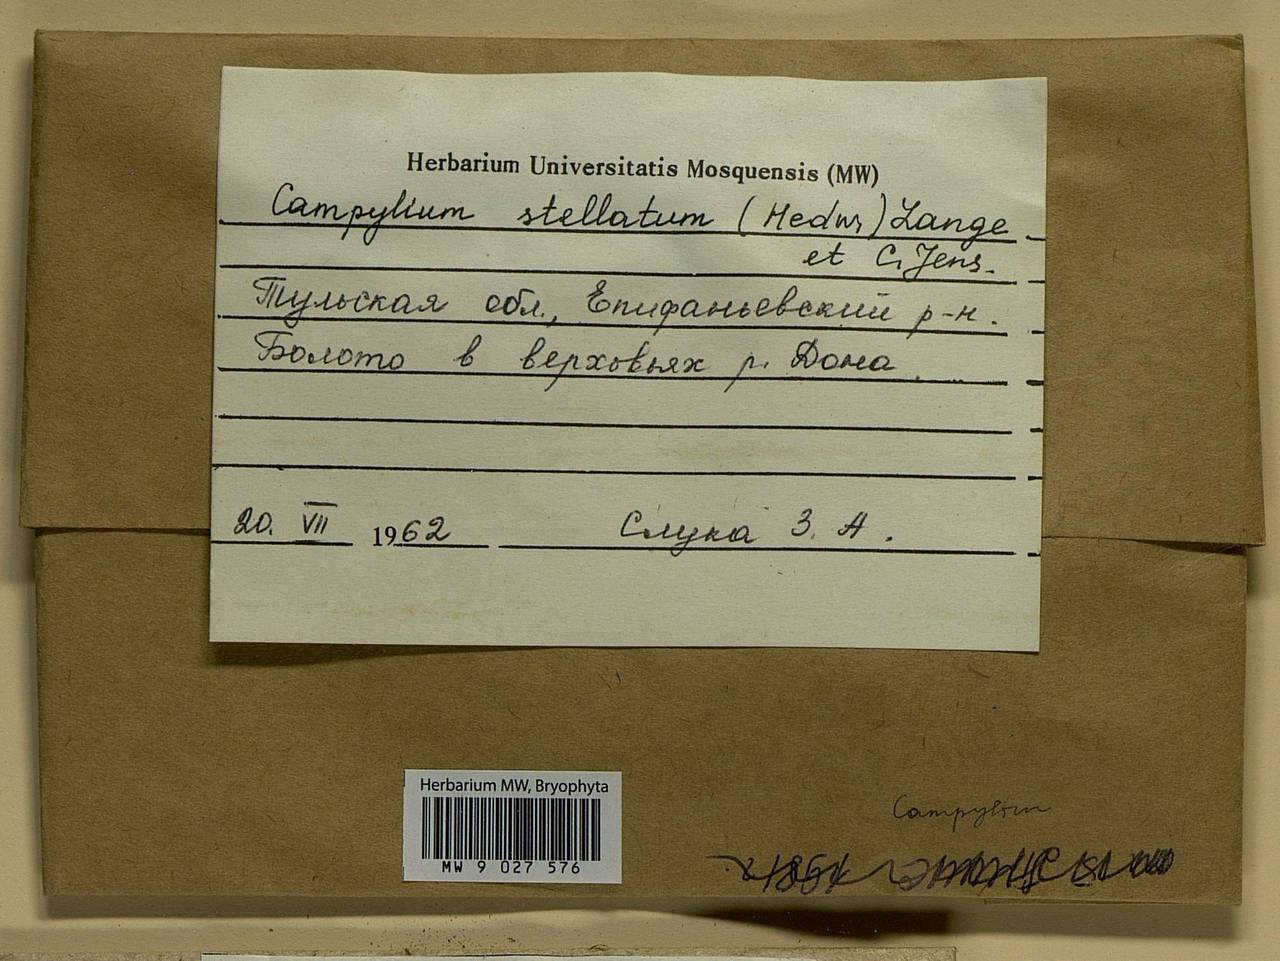 Herbarium Universitatis Mosquensis (MW)
Campylium stellatum (Hedw) Lange
et C. Jens.
Тульская обл., Епифаньевский р-н.
Болото в верховьях р. Дона
20. VII 1962 Слука З. А.
Herbarium MW, Bryophyta
MW 9 027 576
Campylium